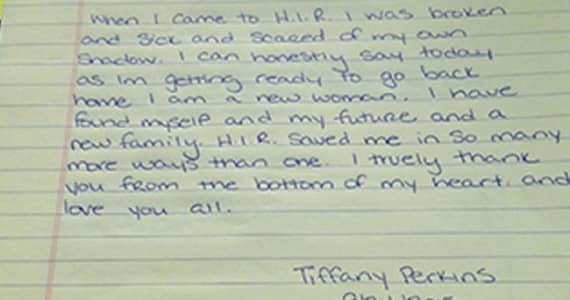 When I came to H.I.R. I was broken
and sick and scared of my own
shadow. I can honestly say today
as Im getting ready to go back
home I am a new woman. I have
found myself and my future and a
new family. H.I.R. saved me in so many
more ways than one. I truely thank
you from the bottom of my heart. and
love you all.
Tiffany Perkins